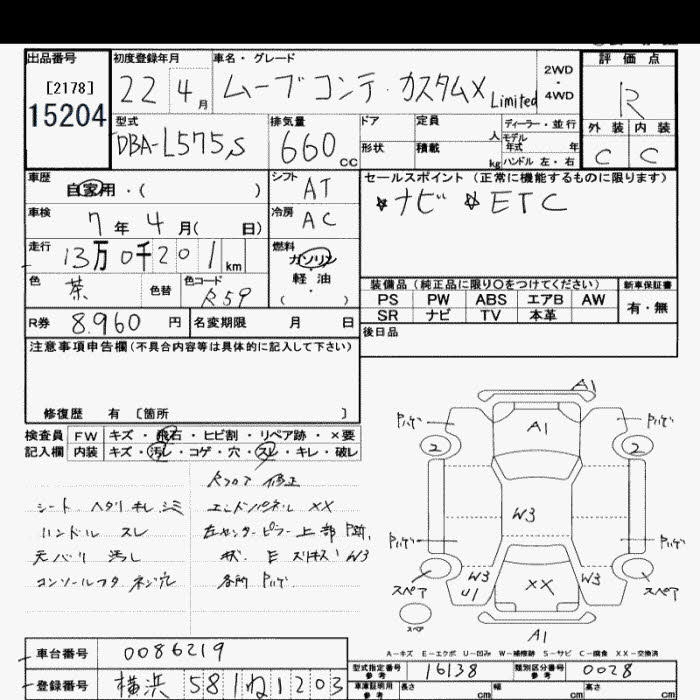 出品番号
[2178]
15204
初度登録年月
22 4月
車名・グレード
ムーブコンテ・カスタムX Limited
2WD・4WD
評価点
R
外装 内装
C C
型式
DBA-L575S
排気量
660cc
ドア
形状
定員 人
積載 kg
ディーラー・並行
モデル年式 年
ハンドル 左・右
車歴
自家用・( )
シフト
AT
セールスポイント(正常に機能するものに限ります)
☆ナビ ☆ETC
車検
7年4月( 日)
冷房
AC
走行
13万0千201km
燃料
ガソリン
軽油
( ・ )
色
茶
色替
色コード
R59
装備品(純正品に限り○をつけてください)
PS PW ABS エアB AW
SR ナビ TV 本革
新車保証書
有・無
R券 8.960円
名変期限 月 日
後日品
注意事項申告欄(不具合内容等は具体的に記入して下さい)
修復歴 有 [箇所 ]
検査員 FW キズ・飛石・ヒビ割・リペア跡・×要
記入欄 内装 キズ・汚レ・コゲ・穴・スレ・キレ・破レ
Rフロア 修正
シート ヘタリ キレ シミ
エンドパネル XX
ハンドル スレ
左センターピラー上部
天バリ 汚レ
W3
コンソールフタ ネジ穴
各所 Pハゲ
A1
Pハゲ A1 Pハゲ
2 2
W3
Pハゲ Pハゲ
スペア W3 U1 XX W3 スペア
スペア
A1
A-キズ E-エクボ U-凹み W-補修跡 S-サビ C-腐食 XX-交換済
車台番号 0086219
登録番号 横浜 581 ね 1203
型式指定番号 参考 16138
類別区分番号 参考 0028
車庫証明用 参考 長さ cm 幅 cm 高さ cm